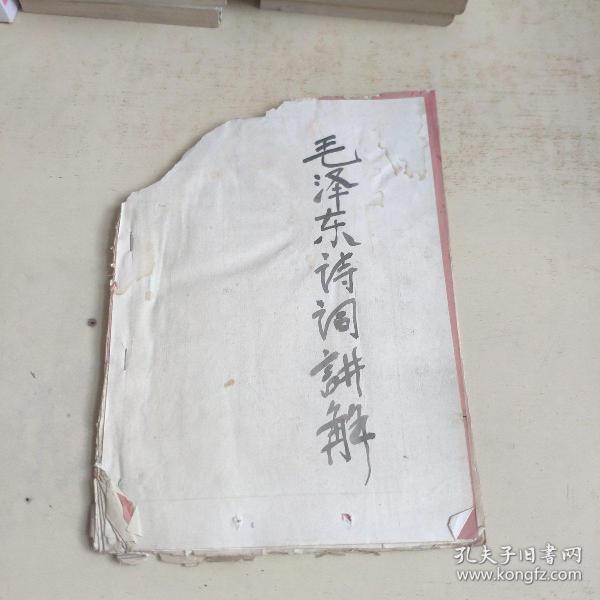 毛泽东诗词讲解
孔夫子旧書网
www.kongfz.com